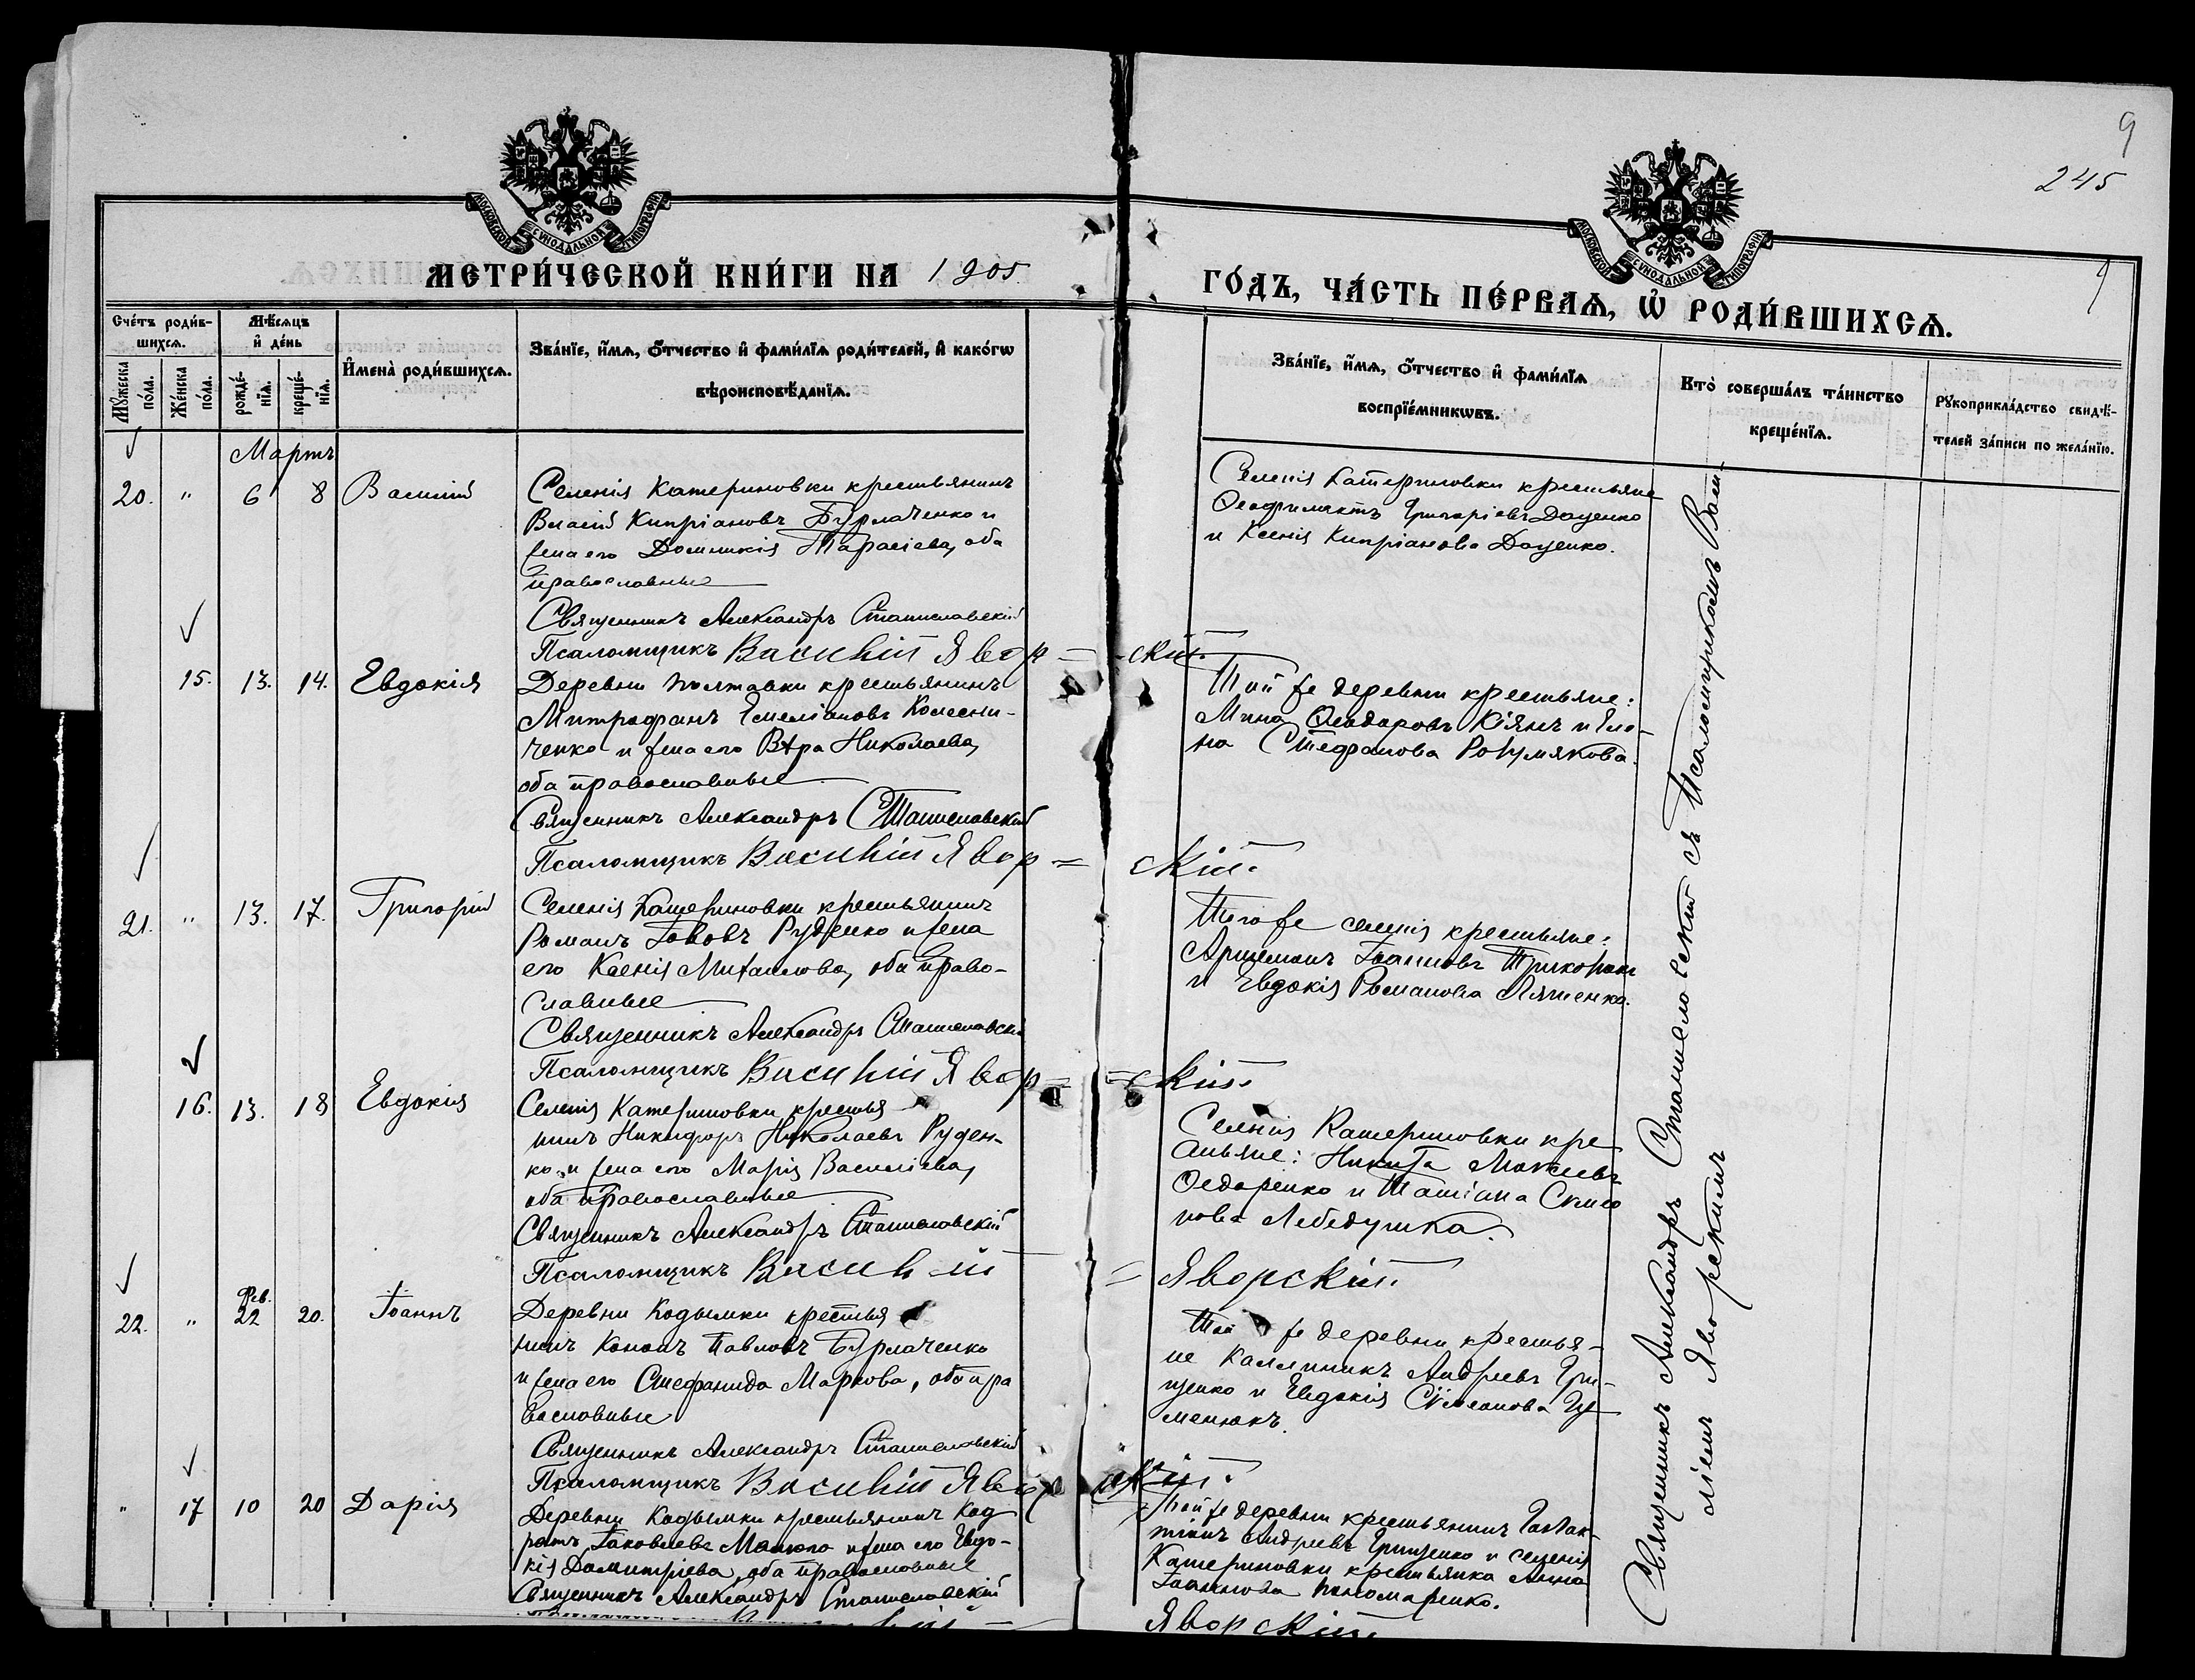 9
245
МОСКОВСКОЙ СѴНОДАЛЬНОЙ ТИПОГРАФІИ
МОСКОВСКОЙ СѴНОДАЛЬНОЙ ТИПОГРАФІИ
МЕТРИ́ЧЕСКОЙ КНИ́ГИ НА 1905
ГО́ДЪ, ЧА́СТЬ ПЕ́РВАѦ, Ѡ҆ РОДИ́ВШИХСѦ.
Сче́тъ роди́в-
шихсѧ.
Мꙋ́жеска по́ла.
Же́нска по́ла.
Мѣ́сѧцъ
и҆ де́нь
рожде́-
нїѧ.
креще́-
нїѧ.
И҆мена̀ роди́вшихсѧ.
Зва́нїе, и҆́мѧ, ѻ҆́тчество и҆ фами́лїѧ роди́телей, и҆ како́гѡ
вѣроисповѣ́данїѧ.
Зва́нїе, и҆́мѧ, ѻ҆́тчество и҆ фами́лїѧ
воспрїе́мникѡвъ.
Кто̀ соверша́лъ та́инство
креще́нїѧ.
Рꙋкоприкла́дство свидѣ́-
телей за́писи по жела́нїю.
Мартъ
20. " 6 8 Василій
Селенія Катериновки крестьянинъ
Власій Кипріановъ Бурлаченко и
жена его Домникія Тарасіева, оба
православные
Священникъ Александръ Станиславскій
Псаломщикъ Василій Явор=скій.
Селенія Катериновки крестьяне
Ѳеофилактъ Григоріевъ Доценко
и Ксенія Кипріанова Доценко.
15. 13. 14. Евдокія
Деревни Полтавки крестьянинъ
Митрофанъ Емеліановъ Колесни-
ченко и жена его Вѣра Николаева,
оба православные
Священникъ Александръ Станиславскій
Псаломщикъ Василій Явор=скій.
Той же деревни крестьяне:
Мина Ѳеодоровъ Кіянъ и Еле-
на Стефанова
21. " 13. 17. Григорій
Селенія Катериновки крестьянинъ
Романъ Іововъ Руденко и жена
его Ксенія Михаилова, оба право-
славные
Священникъ Александръ Станиславскій
Псаломщикъ Василій Явор==скій.
Того же селенія крестьяне:
Іоанновъ
и Евдокія Романова Ляшенко.
16. 13. 18 Евдокія
Селенія Катериновки крестья
нинъ Никифоръ Николаевъ Руден-
ко и жена его Марія Василіева,
оба православные
Священникъ Александръ Станиславскій
Псаломщикъ Василій = Яворскій.
Селенія Катериновки кре
стьяне: Никита
Ѳедоренко и Татіана
Лебедушка.
22. " Фев. 22 20. Іоаннъ
Деревни Кодымки крестья
нинъ Кононъ Павловъ Бурлаченко
и жена его Стефанида Маркова, оба пра
вославные
Священникъ Александръ Станиславскій
Псаломщикъ Василій Яворскій.
Той же деревни крестья-
не Каллиникъ Андреевъ Гри-
ценко и Евдокія
" 17 10 20 Дарія
Деревни Кодымки крестьянинъ Код
ратъ Іаковлевъ и жена его Евдо-
кія Димитріева, оба православные
Священникъ Александръ Станиславскій
Яворскій
Той же деревни крестьянинъ
Андреевъ Гриценко и селенія
Катериновки крестьянка Анна
Іоаннова Пономаренко.
Священникъ Александръ Станиславскій съ Псаломщикомъ Васи-
ліемъ Яворскимъ